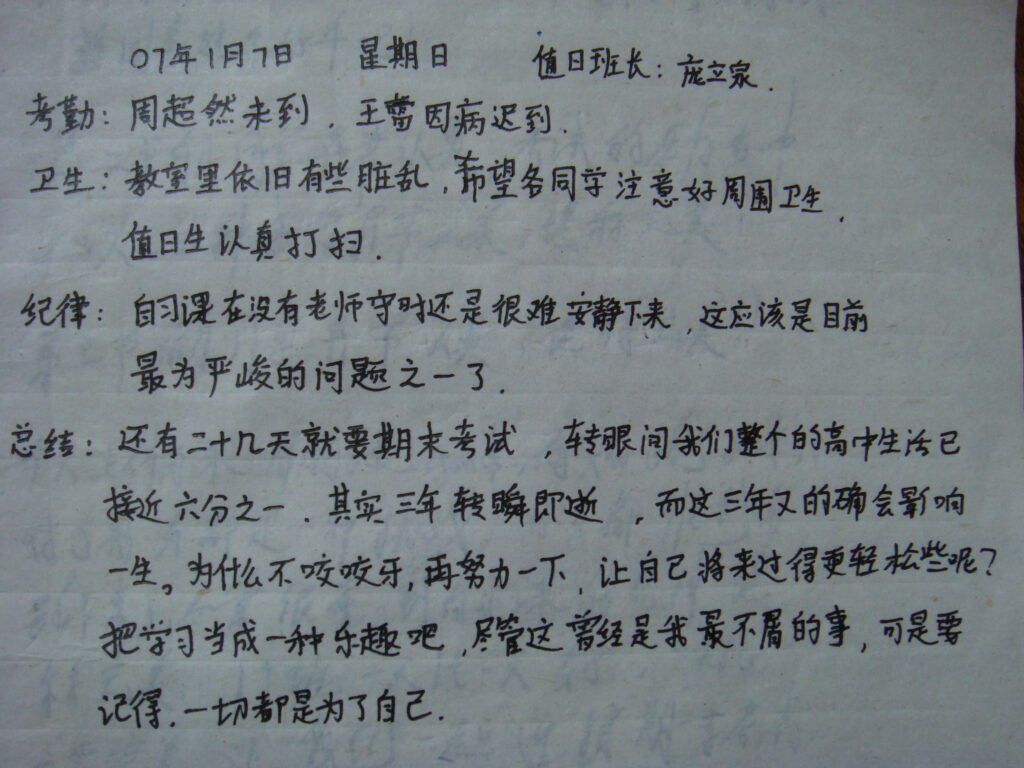 07年1月7日 星期日 值日班长：庞立泉.
考勤：周超然未到，王蕾因病迟到.
卫生：教室里依旧有些脏乱，希望各同学注意好周围卫生.
值日生认真打扫.
纪律：自习课在没有老师守时还是很难安静下来，这应该是目前
最为严峻的问题之一了.
总结：还有二十几天就要期末考试，转眼间我们整个的高中生活已
接近六分之一.其实三年转瞬即逝，而这三年又的确会影响
一生。为什么不咬咬牙，再努力一下，让自己将来过得更轻松些呢？
把学习当成一种乐趣吧，尽管这曾经是我最不屑的事，可是要
记得.一切都是为了自己.